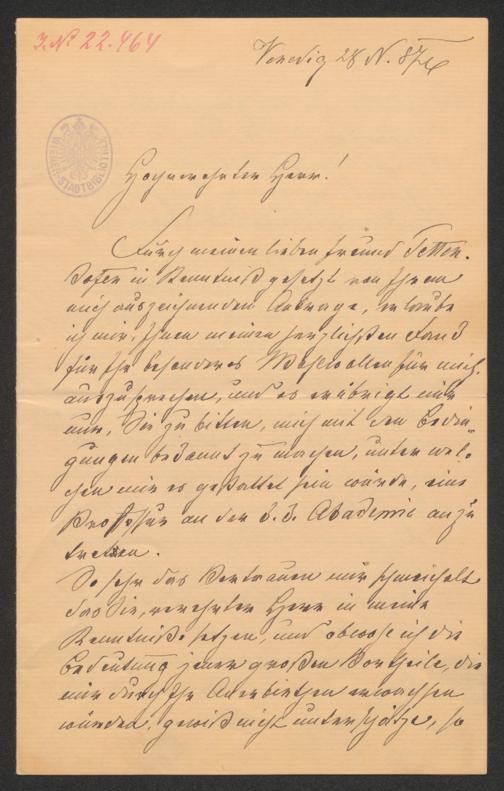 J. N° 22.464
Venedig 28 N. 87
WIENER STADTBIBLIOTHEK
Hochverehrter Herr!
Durch meinen lieben Freund Petten-
kofen in Kenntniß gesetzt von Ihrem
mich auszeichnenden Antrage, erlaube
ich mir, Ihnen meinen herzlichsten Dank
für Ihr besonderes Wohlwollen für mich
auszusprechen, und es erübrigt mir
nur, Sie zu bitten, mich mit den Bedin-
gungen bekannt zu machen, unter wel-
chen mir es gestattet sein würde, eine
Professur an der k. k. Akademie anzu
tretten.
So sehr das Vertrauen mir schmeichelt
das Sie, verehrter Herr in meine
Kenntniße setzen, und obwohl ich die
Bedeutung jener großen Vortheile, die
mir durch Ihr Anerbiethen erwachsen
würden, gewiß nicht unterschätze, so